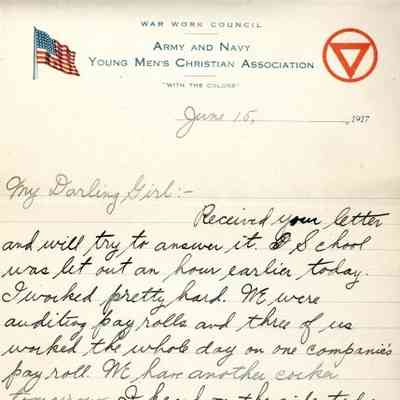 WAR WORK COUNCIL
ARMY AND NAVY
YOUNG MEN'S CHRISTIAN ASSOCIATION
"WITH THE COLORS"
June 15, 1917
My Darling Girl:-
Received your letter
and will try to answer it. School
was let out an hour earlier today.
I worked pretty hard. We were
auditing pay rolls and three of us
worked the whole day on one companies
pay roll. We have another corker
tomorrow. I heard on the side today